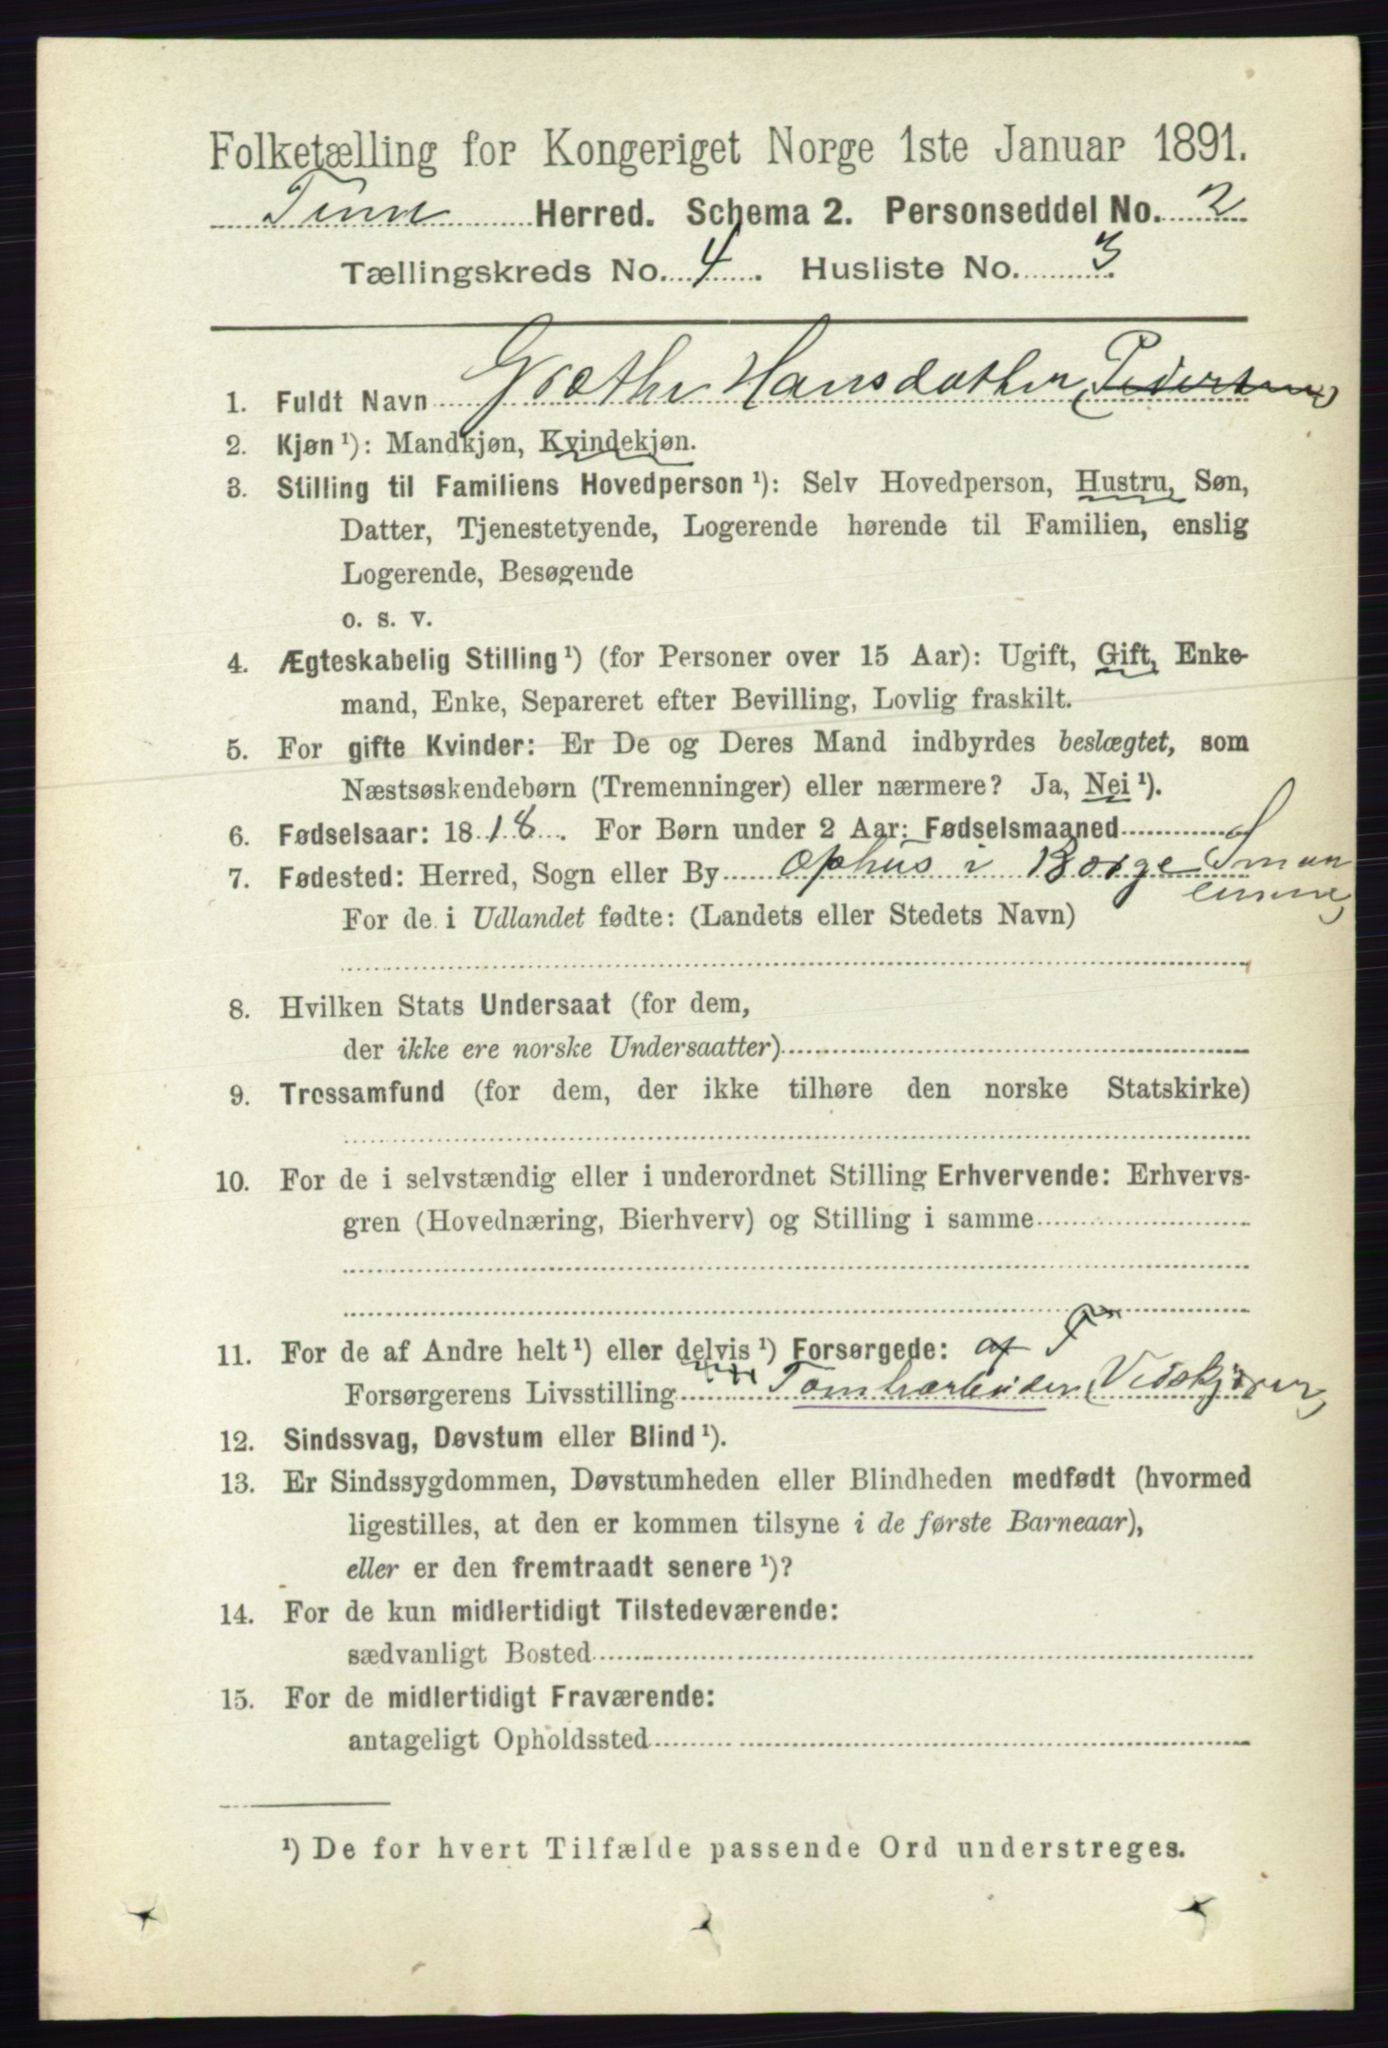 Folketælling for Kongeriget Norge 1ste Januar 1891.
Tune Herred. Schema 2. Personseddel No. 2
Tællingskreds No. 4. Husliste No. 3.
1. Fuldt Navn Grethe Hansdather (Pedersen)
2. Kjøn ¹): Mandkjøn, Kvindekjøn.
3. Stilling til Familiens Hovedperson ¹): Selv Hovedperson, Hustru, Søn,
Datter, Tjenestetyende, Logerende hørende til Familien, enslig
Logerende, Besøgende
o. s. v.
4. Ægteskabelig Stilling ¹) (for Personer over 15 Aar): Ugift, Gift, Enke-
mand, Enke, Separeret efter Bevilling, Lovlig fraskilt.
5. For gifte Kvinder: Er De og Deres Mand indbyrdes beslægtet, som
Næstsøskendebørn (Tremenninger) eller nærmere? Ja, Nei ¹).
6. Fødselsaar: 1818. For Børn under 2 Aar: Fødselsmaaned
7. Fødested: Herred, Sogn eller By Ophus i Borge Smaalenene
For de i Udlandet fødte: (Landets eller Stedets Navn)
8. Hvilken Stats Undersaat (for dem,
der ikke ere norske Undersaatter)
9. Trossamfund (for dem, der ikke tilhøre den norske Statskirke)
10. For de i selvstændig eller i underordnet Stilling Erhvervende: Erhvervs-
gren (Hovednæring, Bierhverv) og Stilling i samme
11. For de af Andre helt ¹) eller delvis ¹) Forsørgede: af
Forsørgerens Livsstilling Tomtearbeider (Vedskjærer)
12. Sindssvag, Døvstum eller Blind ¹).
13. Er Sindssygdommen, Døvstumheden eller Blindheden medfødt (hvormed
ligestilles, at den er kommen tilsyne i de første Barneaar),
eller er den fremtraadt senere ¹)?
14. For de kun midlertidigt Tilstedeværende:
sædvanligt Bosted
15. For de midlertidigt Fraværende:
antageligt Opholdssted
¹) De for hvert Tilfælde passende Ord understreges.